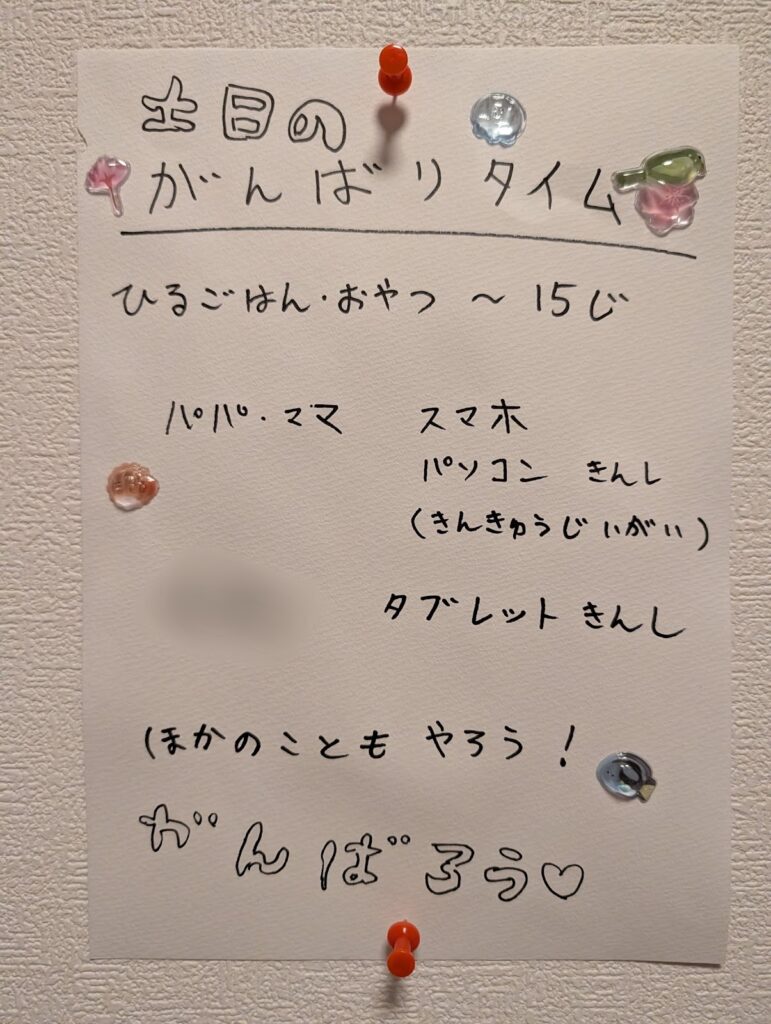 土日の
がんばりタイム
ひるごはん・おやつ ～ 15じ
パパ・ママ スマホ
パソコン きんし
(きんきゅうじ いがい)
タブレット きんし
ほかのことも やろう！
がんばろう♡